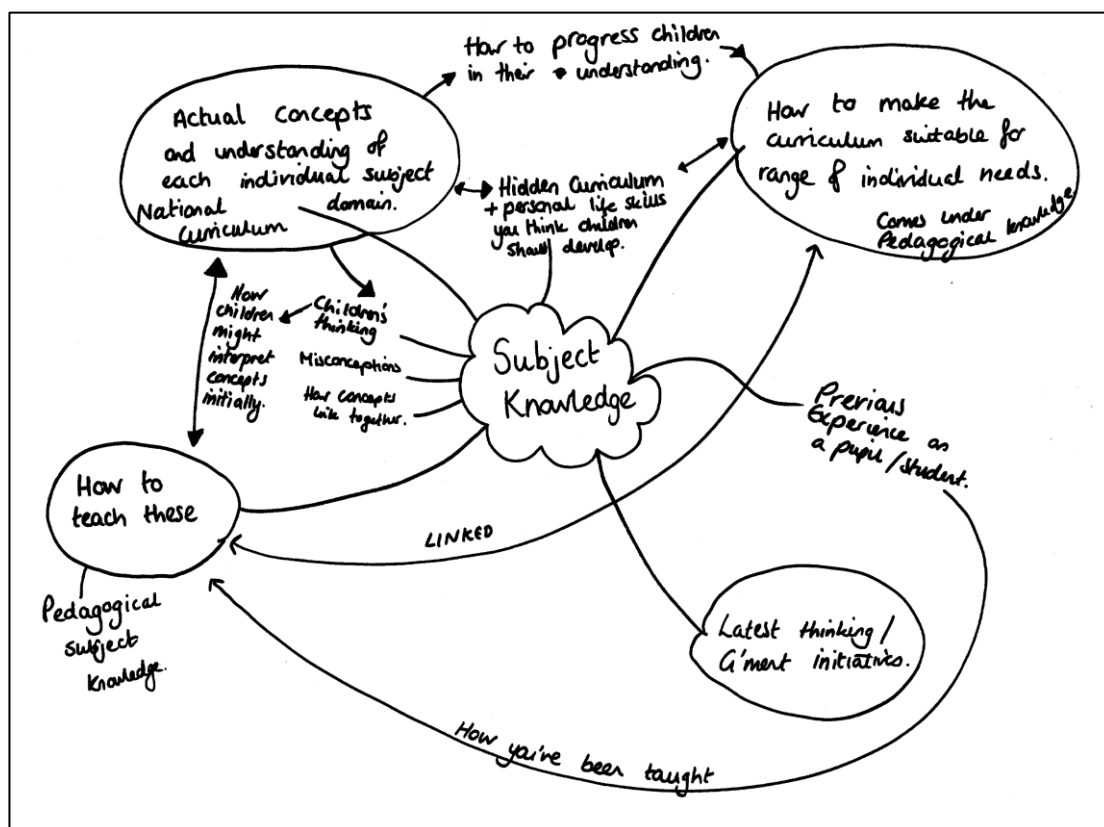 How to progress children
in their understanding.
Actual concepts
and understanding of
each individual subject
domain.
National
Curriculum
How to make the
curriculum suitable for
range of individual needs.
Comes under
Pedagogical knowledge
Hidden Curriculum
+ personal life skills
you think children
should develop.
How
children
might
interpret
concepts
initially.
Children's
thinking
Misconceptions
How concepts
link together.
Subject
Knowledge
Previous
Experience as
a pupil/student.
How to
teach these
LINKED
Pedagogical
subject
knowledge.
Latest thinking/
G'ment initiatives.
How you've been taught